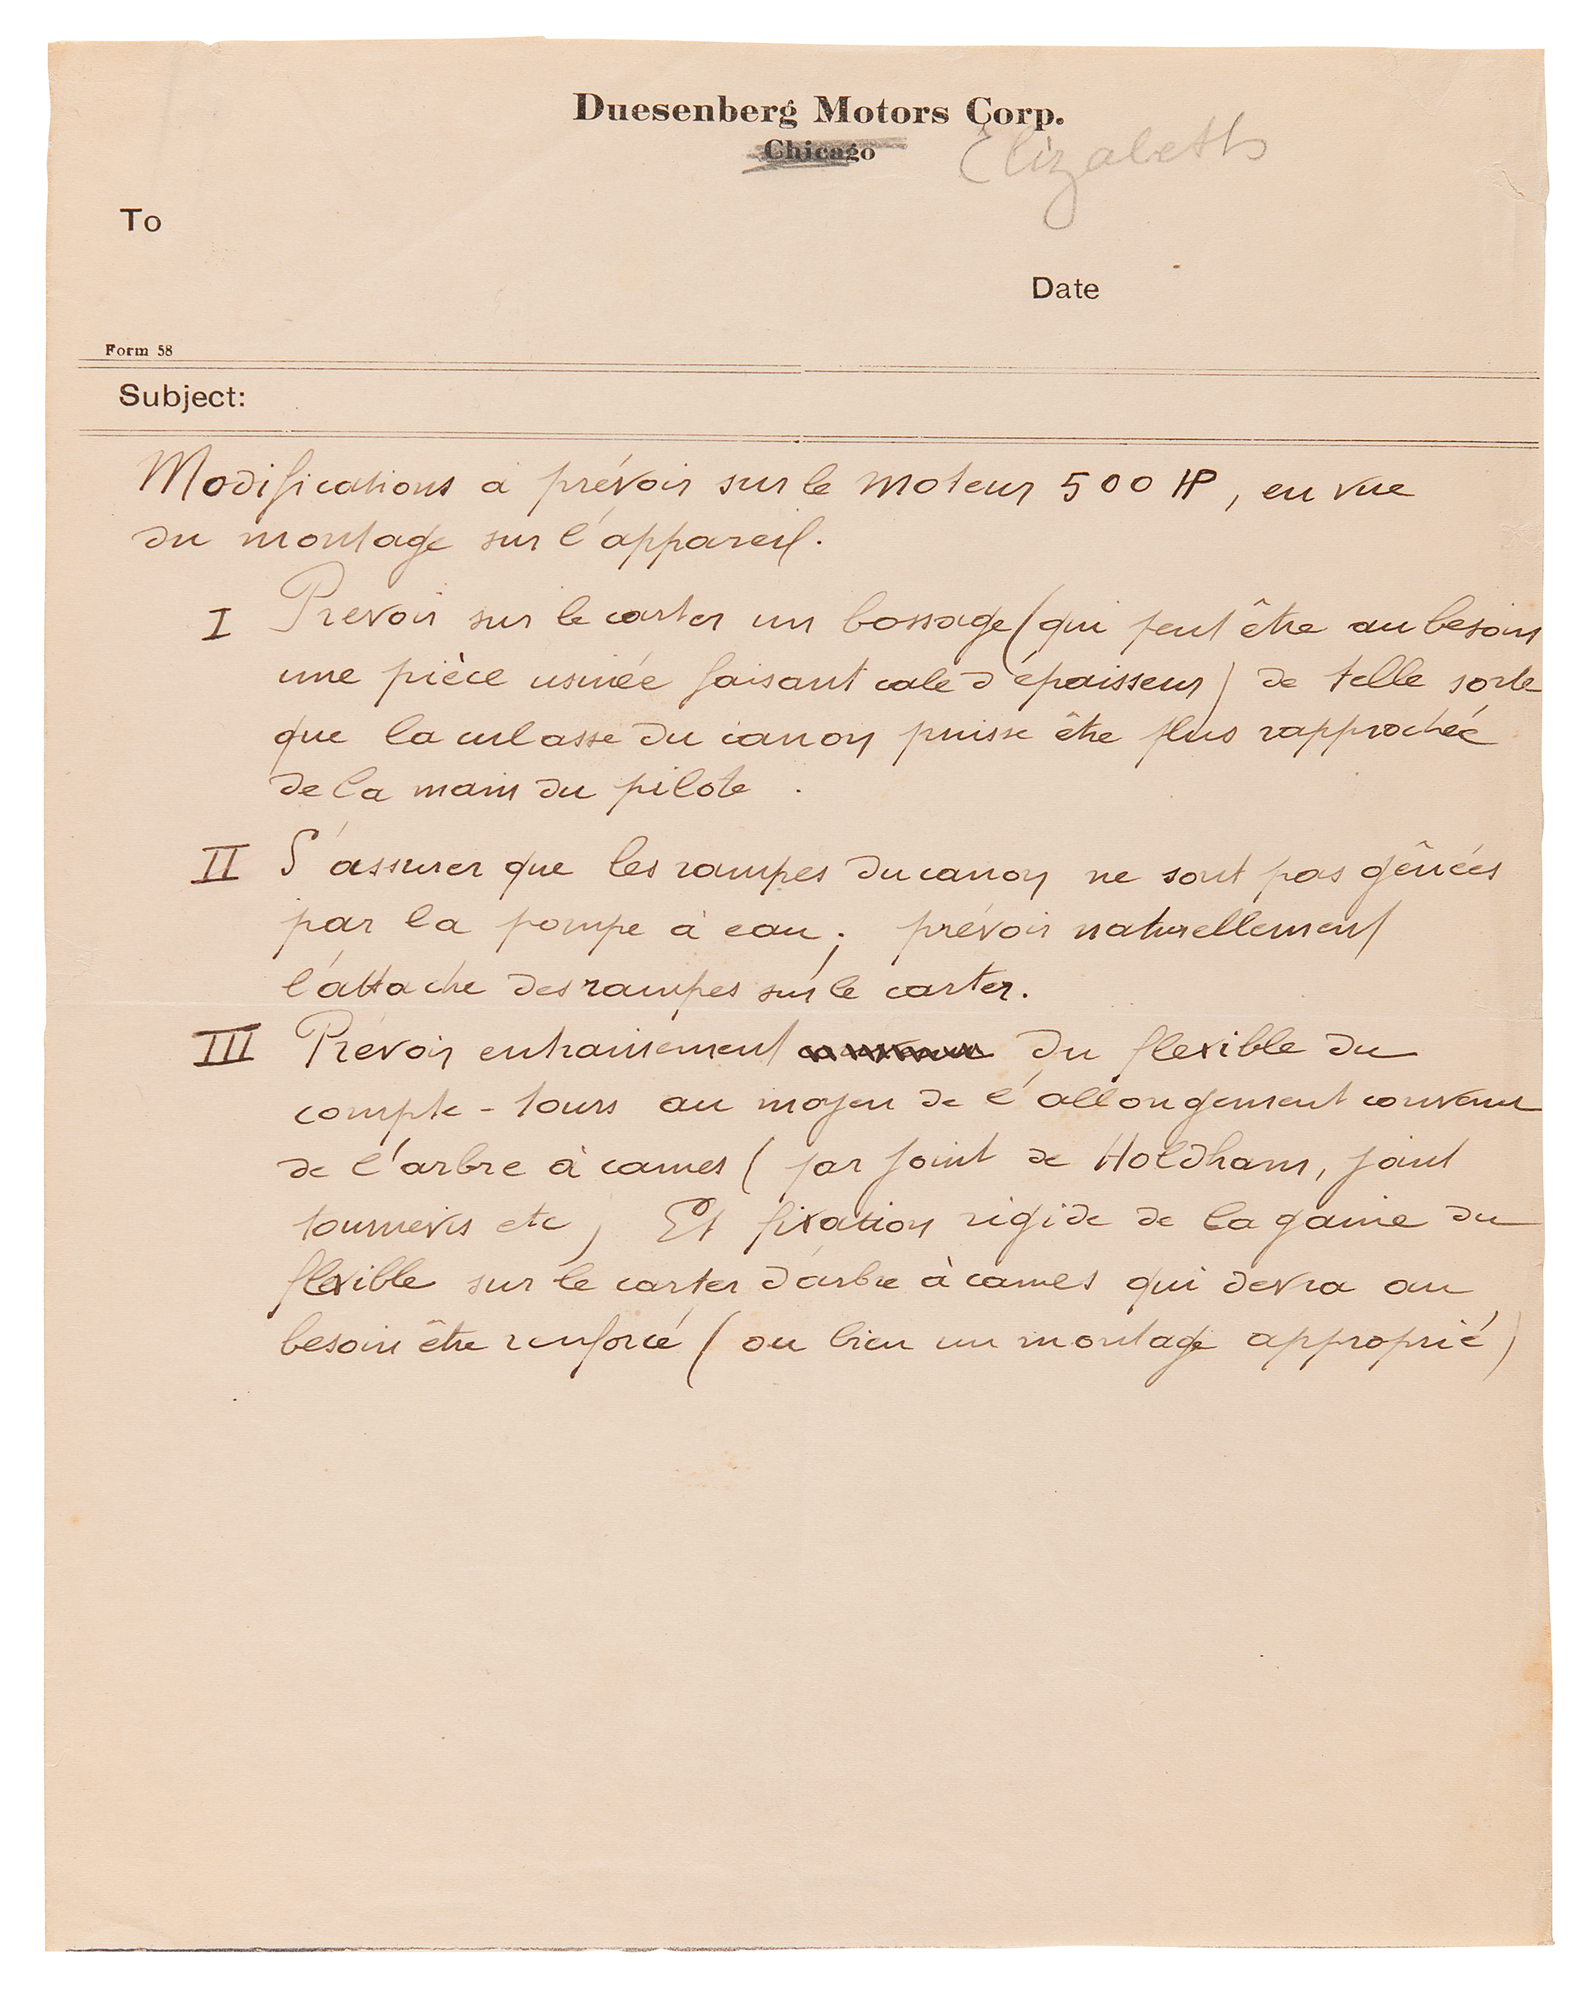 Duesenberg Motors Corp.
Chicago Elizabeth
To
Date
Form 58
Subject:
Modifications a prévoir sur le moteur 500 HP, en vue
du montage sur l'appareil.
I Prevoir sur le carter un bossage (qui peut être au besoin
une pièce usinée faisant cale d'épaisseur) de telle sorte
que la culasse du canon puisse être plus rapprochée
de la main du pilote.
II S'assurer que les rampes du canon ne sont pas gênées
par la pompe à eau; prévoir naturellement
l'attache des rampes sur le carter.
III Prévoir entrainement du flexible du
compte-tours au moyen de l'allongement convenu
de l'arbre à cames (par joint de Holdham, joint
tournevis etc) Et fixation rigide de la gaine du
flexible sur le carter d'arbre à cames qui devra au
besoin être renforcé (ou bien un montage approprié)